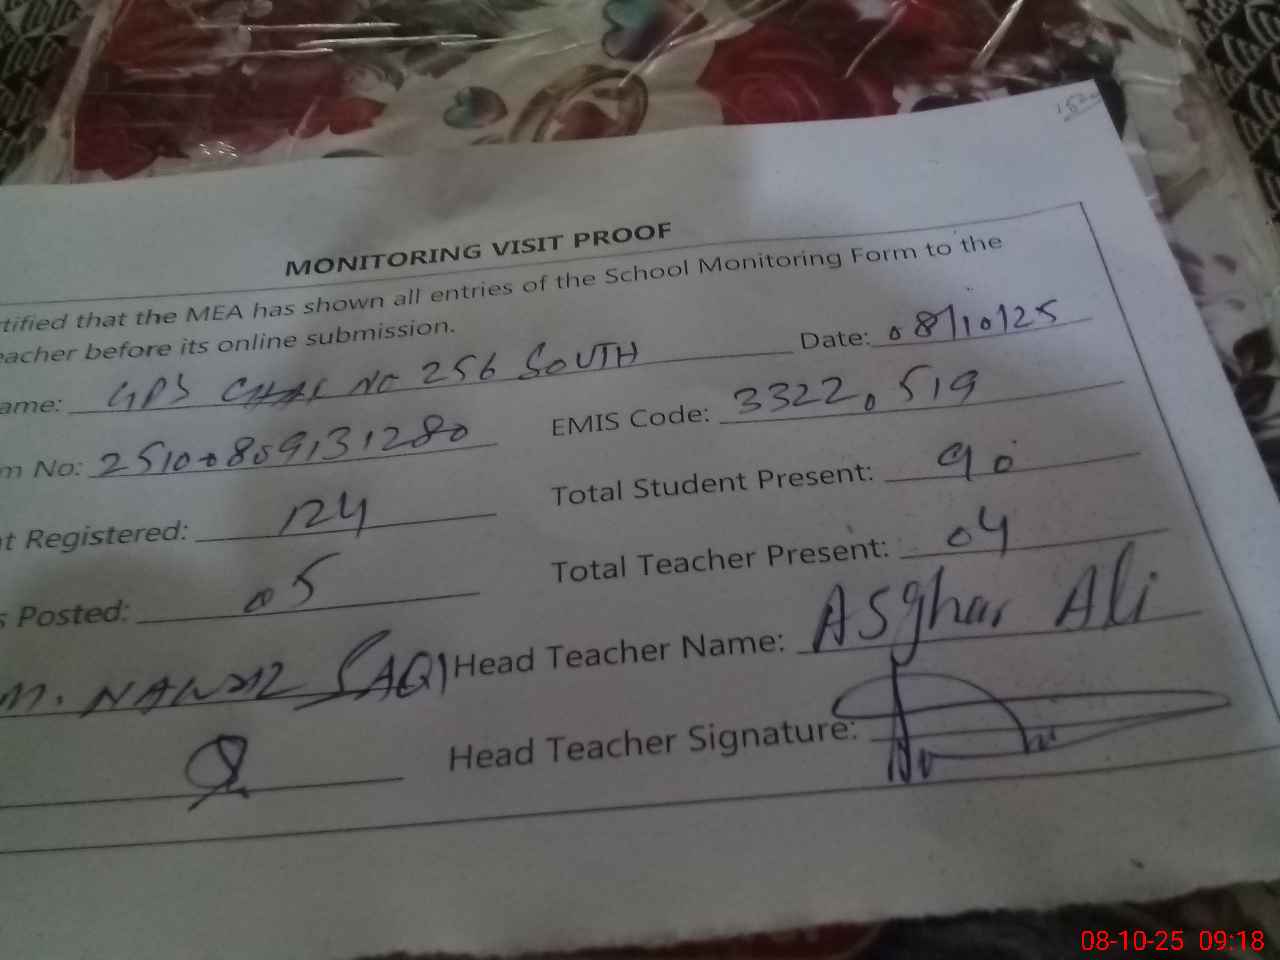 MONITORING VISIT PROOF
tified that the MEA has shown all entries of the School Monitoring Form to the
eacher before its online submission.
ame: GPS CHAK No 256 SOUTH Date: 08/10/25
m No: 2510-0809131280 EMIS Code: 33220519
t Registered: 124 Total Student Present: 90
s Posted: 05 Total Teacher Present: 04
M. NAWAZ SAQI Head Teacher Name: Asghar Ali
Head Teacher Signature:
08-10-25 09:18